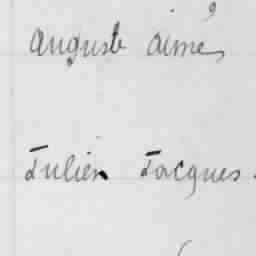 auguste aimé,
Julien Jacques.